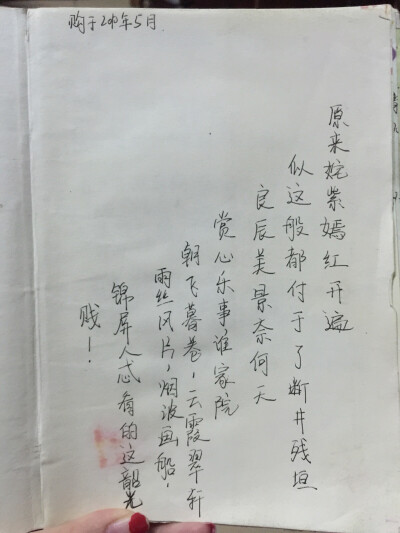 购于年5月
原来姹紫嫣红开遍
似这般都付于了断井残垣
良辰美景奈何天
赏心乐事谁家院
朝飞暮卷，云霞翠轩
雨丝风片，烟波画船，
锦屏人忒看的这韶光
贱！